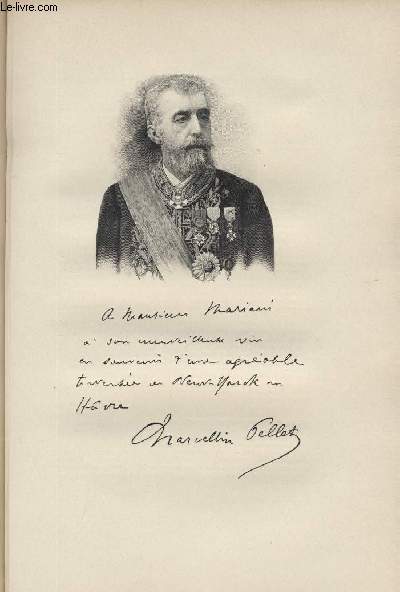 Le-livre.com
A Monsieur Mariani
à son merveilleux vin
en souvenir d'une agréable
traversée de New-York au
Havre
Marcellin Pellet